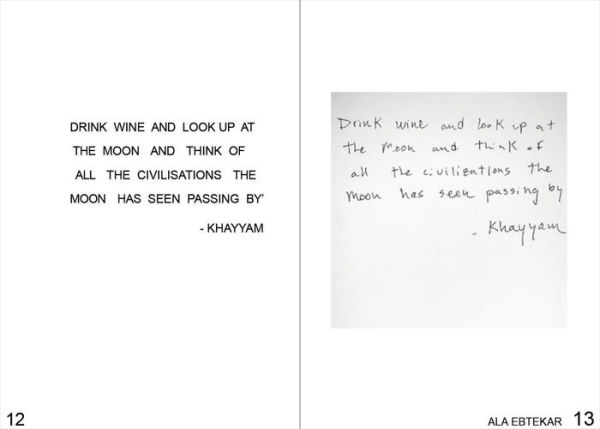 DRINK WINE AND LOOK UP AT
THE MOON AND THINK OF
ALL THE CIVILISATIONS THE
MOON HAS SEEN PASSING BY'
- KHAYYAM
12
Drink wine and look up at
the moon and think of
all the civilizations the
moon has seen passing by
- Khayyam
ALA EBTEKAR 13